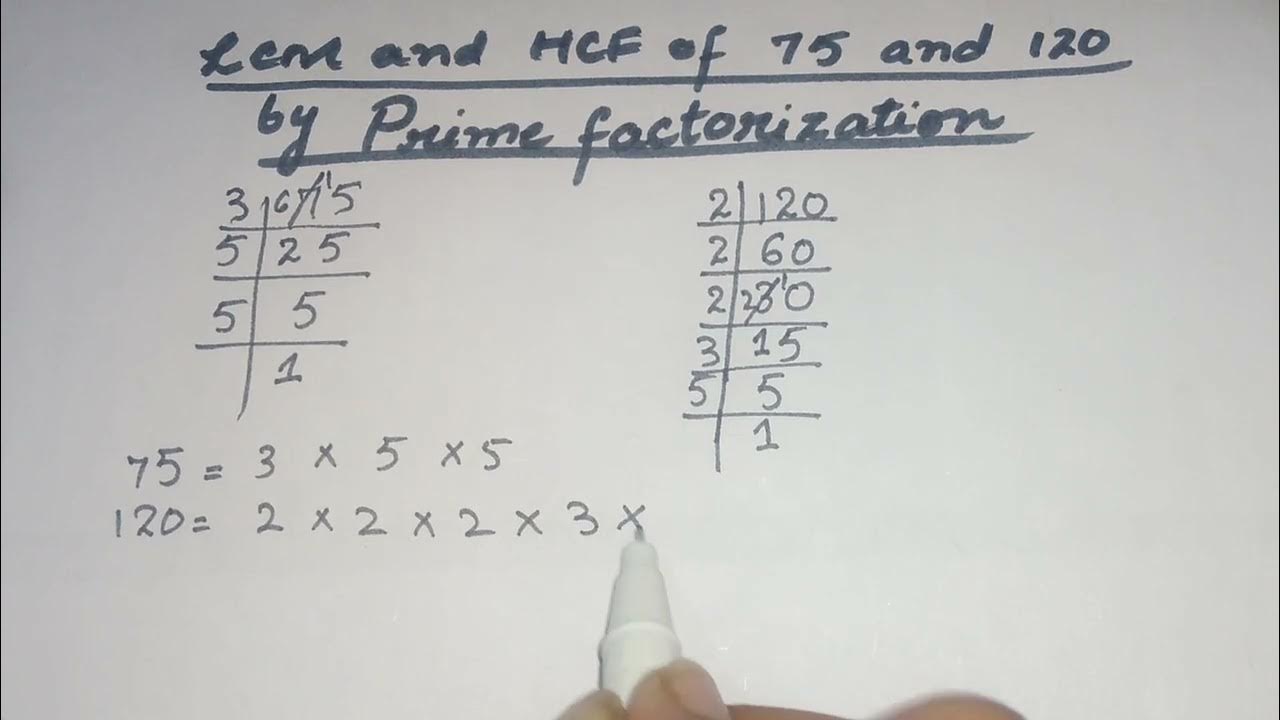 Lcm and HCF of 75 and 120
by Prime factorization
3 75
5 25
5 5
1
2 120
2 60
2 30
3 15
5 5
1
75 = 3 × 5 × 5
120 = 2 × 2 × 2 × 3 ×